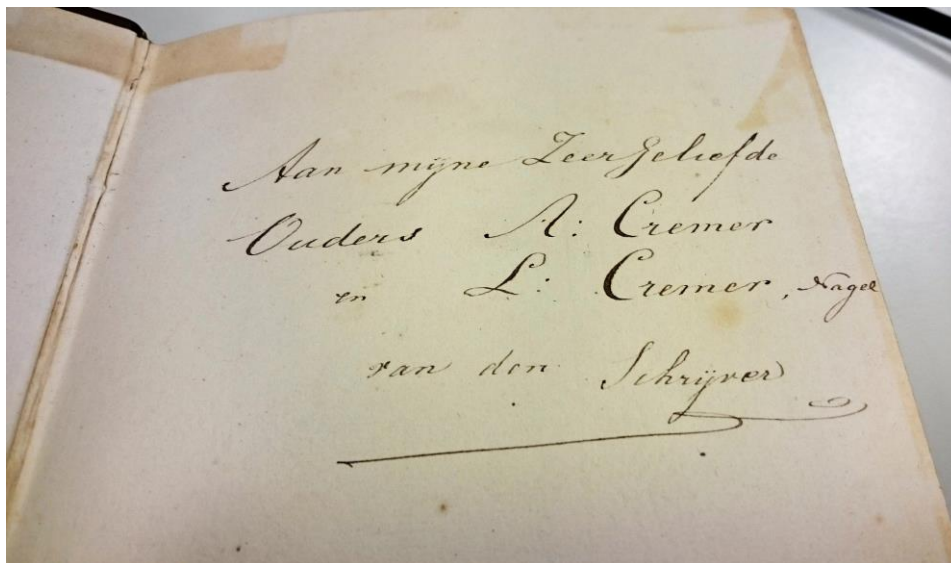 Aan mijne ZeerGeliefde
Ouders A: Cremer
en L: Cremer, Nagel
van den Schrijver